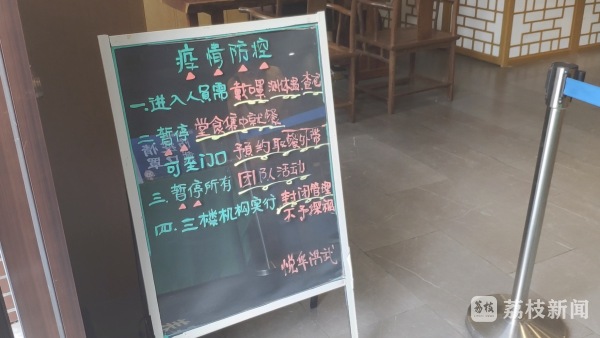 疫情防控
一.进入人员需戴嘿测体温.查
二.暂停堂食集中就餐
可至门口預约取餐外带
三.暂停所有团队活动
四.三楼机构实行封闭管理
不予探视
悦华洪武
荔枝
荔枝新闻